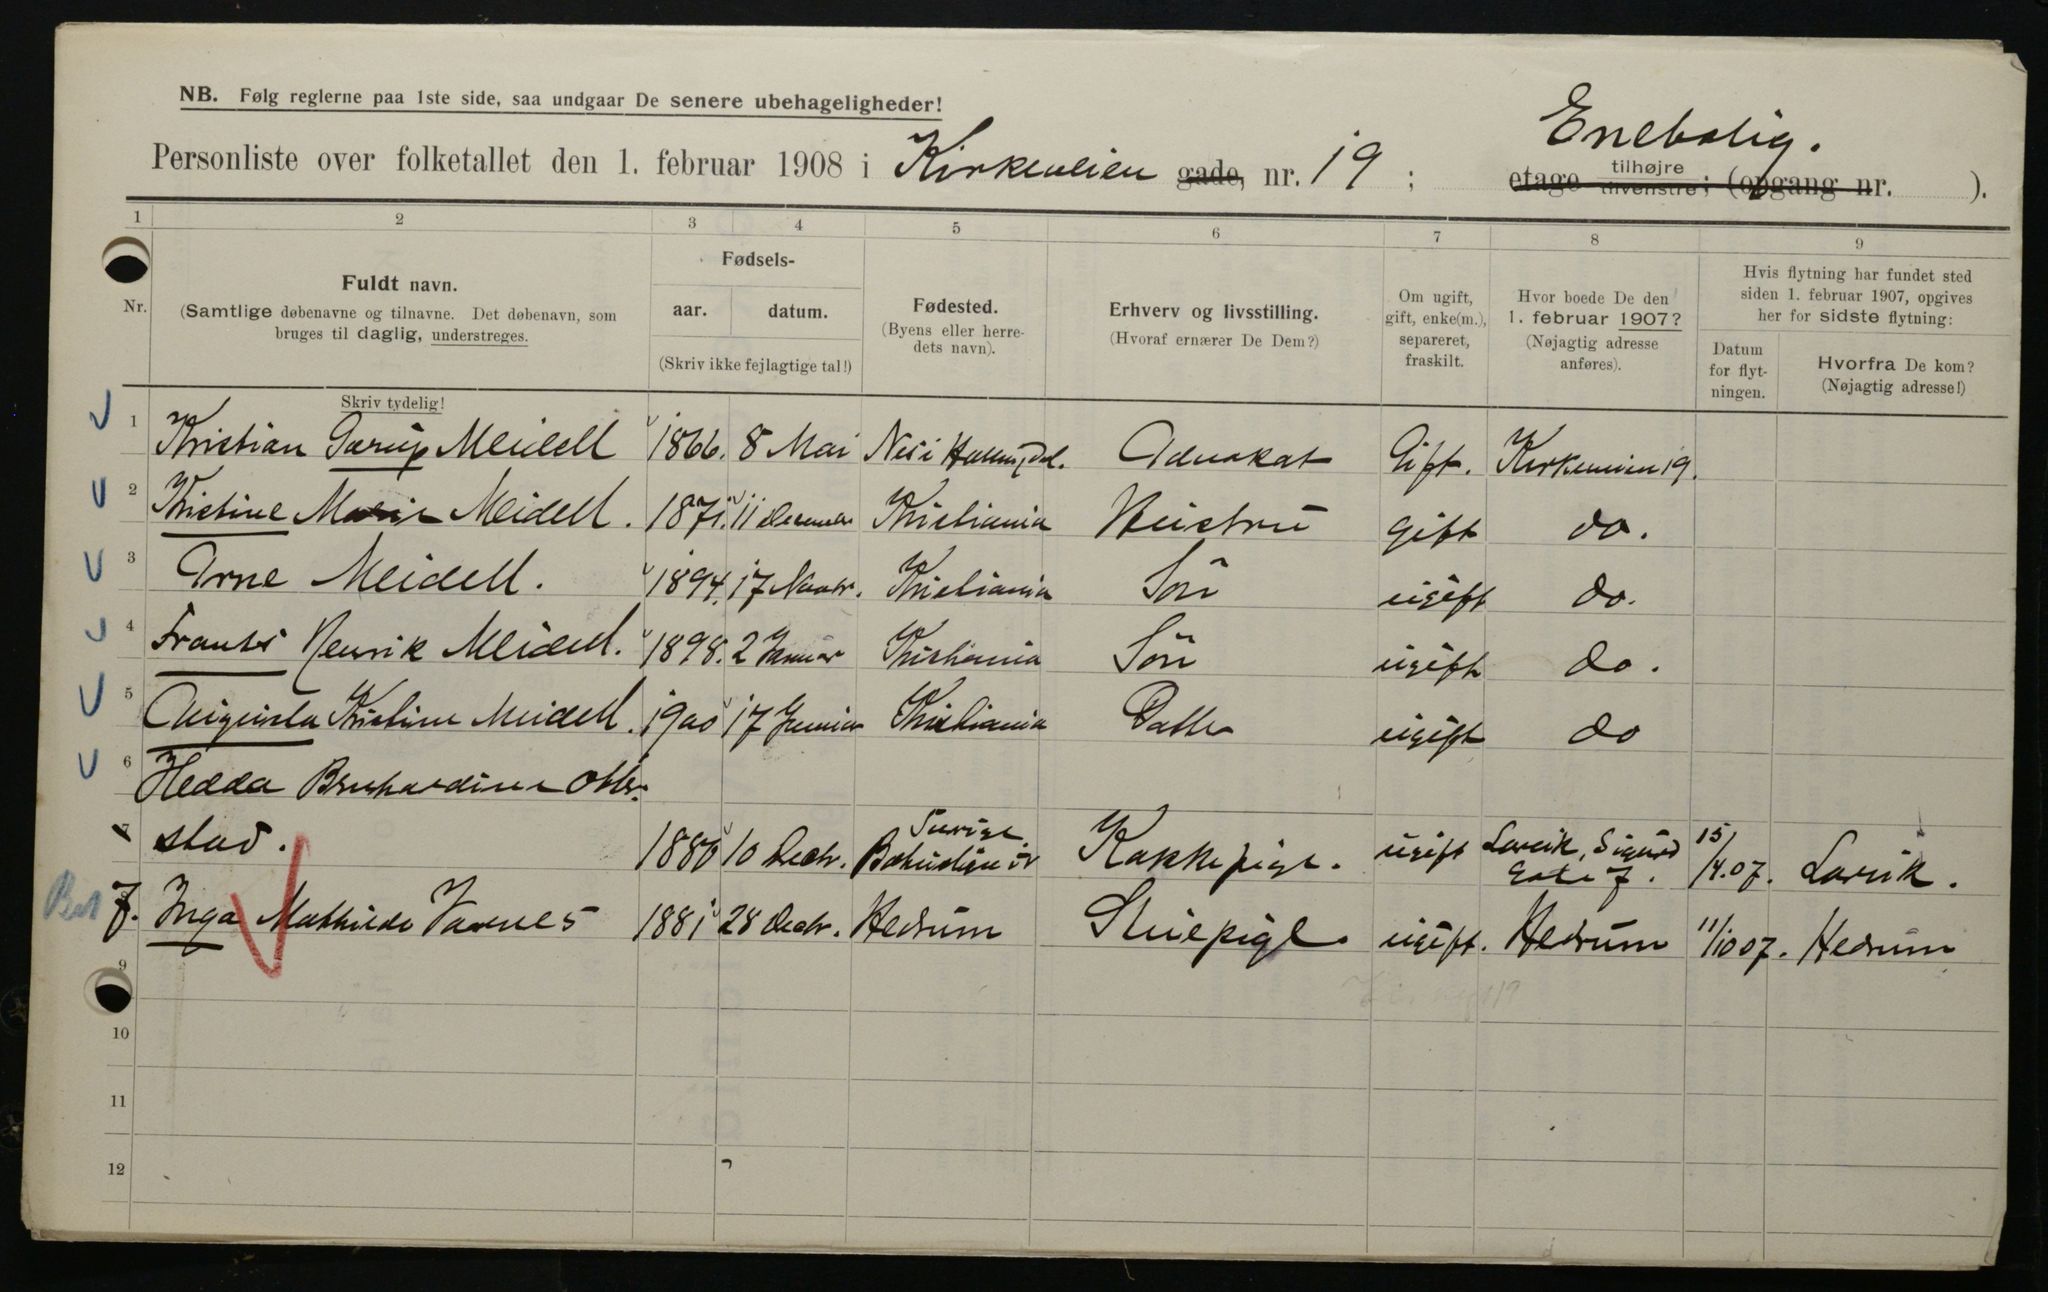 NB. Følg reglerne paa 1ste side, saa undgaar De senere ubehageligheder!
Enebolig.
Personliste over folketallet den 1. februar 1908 i Kirkeveien gade, nr. 19 ; etage tilhøjre tilvenstre; (opgang nr. ).
1 2 3 4 5 6 7 8 9
Nr.
Fuldt navn.
(Samtlige døbenavne og tilnavne. Det døbenavn, som
bruges til daglig, understreges.
Skriv tydelig!
Fødsels-
aar. datum.
(Skriv ikke fejlagtige tal!)
Fødested.
(Byens eller herre-
dets navn).
Erhverv og livsstilling.
(Hvoraf ernærer De Dem?)
Om ugift,
gift, enke(m.),
separeret,
fraskilt.
Hvor boede De den
1. februar 1907?
(Nøjagtig adresse
anføres).
Hvis flytning har fundet sted
siden 1. februar 1907, opgives
her for sidste flytning:
Datum
for flyt-
ningen.
Hvorfra De kom?
(Nøjagtig adresse!)
1 Kristian Garup Meidell 1866. 8 Mai Nes i Advokat Gift. Kirkeveien 19.
2 Kristine Marie Meidell. 1871. 11 December Kristiania Hustru gift do.
3 Arne Meidell. 1894. 17 Novbr. Kristiania Søn ugift do.
4 Frants Henrik Meidell. 1898. 2 Januar Kristiania Søn ugift do.
5 Augusta Kristine Meidell. 1900 17 Januar Kristiania Datter ugift do
6 Hedda Bernhardine Otter-
7 stad. 1880 10 Decbr. Sverige Kokkepige. ugift Larvik, Sigurds Gate 7. 15/4.07. Larvik.
7. Inga Mathilde Varnes 1881 28 Decbr. Hedrum Stuepige. ugift. Hedrum 11/10 07. Hedrum
9
10
11
12